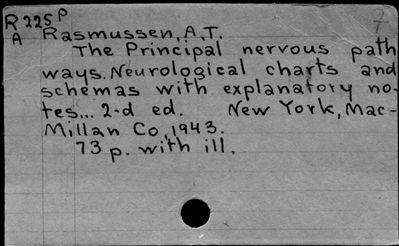 R 225 P
A
7
Rasmussen, A.T.
The Principal nervous path
ways. Neurological charts and
schemas with explanatory no-
tes... 2-d ed. New York, Mac-
Millan Co, 1943.
73 p. with ill.